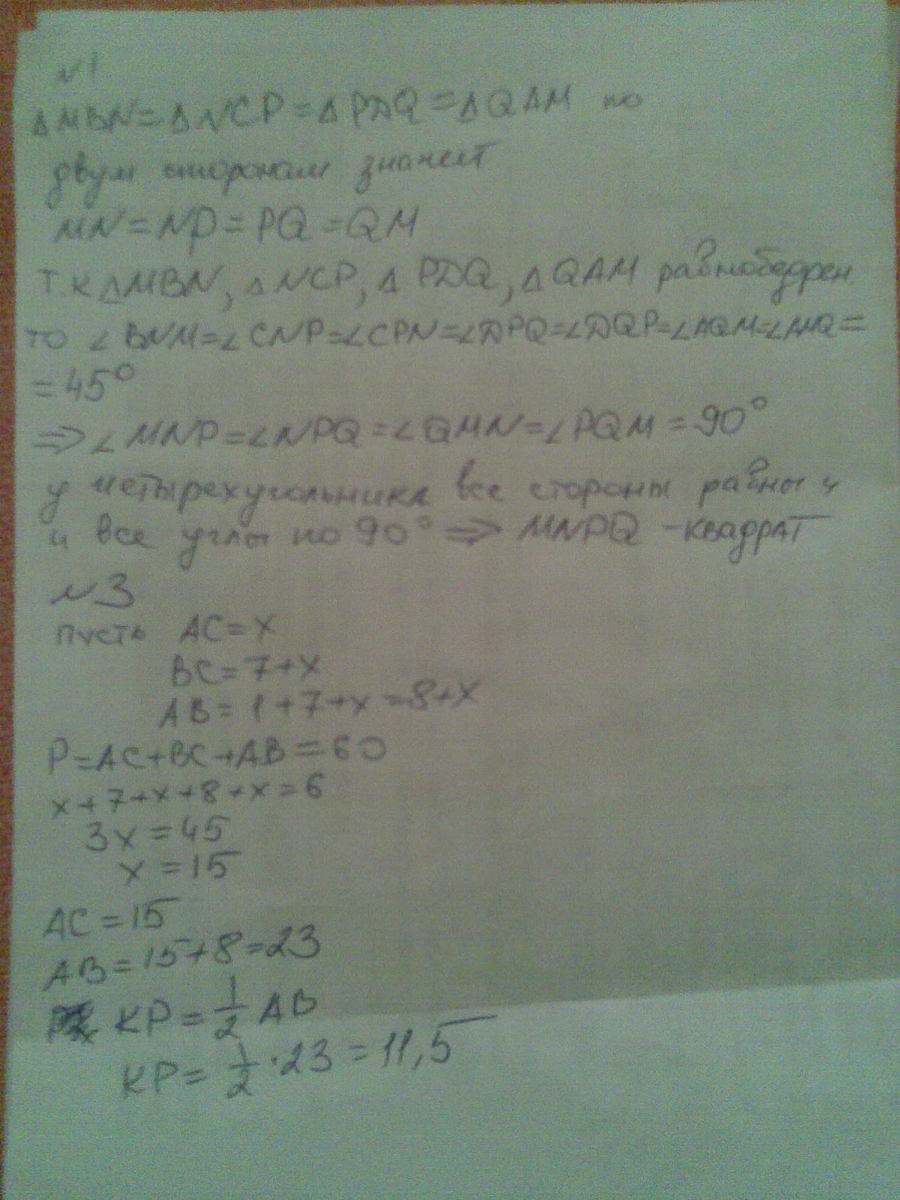 №1
ΔMBN=ΔNCP=ΔPDQ=ΔQAM по
двум сторонам значит
MN=NP=PQ=QM
т.к ΔMBN, ΔNCP, ΔPDQ, ΔQAM равнобедрен
то ∠BNM=∠CNP=∠CPN=∠DPQ=∠DQP=∠AQM=∠AMQ=
=45°
⇒∠MNP=∠NPQ=∠QMN=∠PQM=90°
у четырехугольника все стороны равны и
и все углы по 90° ⇒ MNPQ -квадрат
№3
пусть AC=x
BC=7+x
AB=1+7+x=8+x
P=AC+BC+AB=60
x+7+x+8+x=6
3x=45
x=15
AC=15
AB=15+8=23
KP=1/2 AB
KP=1/2·23=11,5